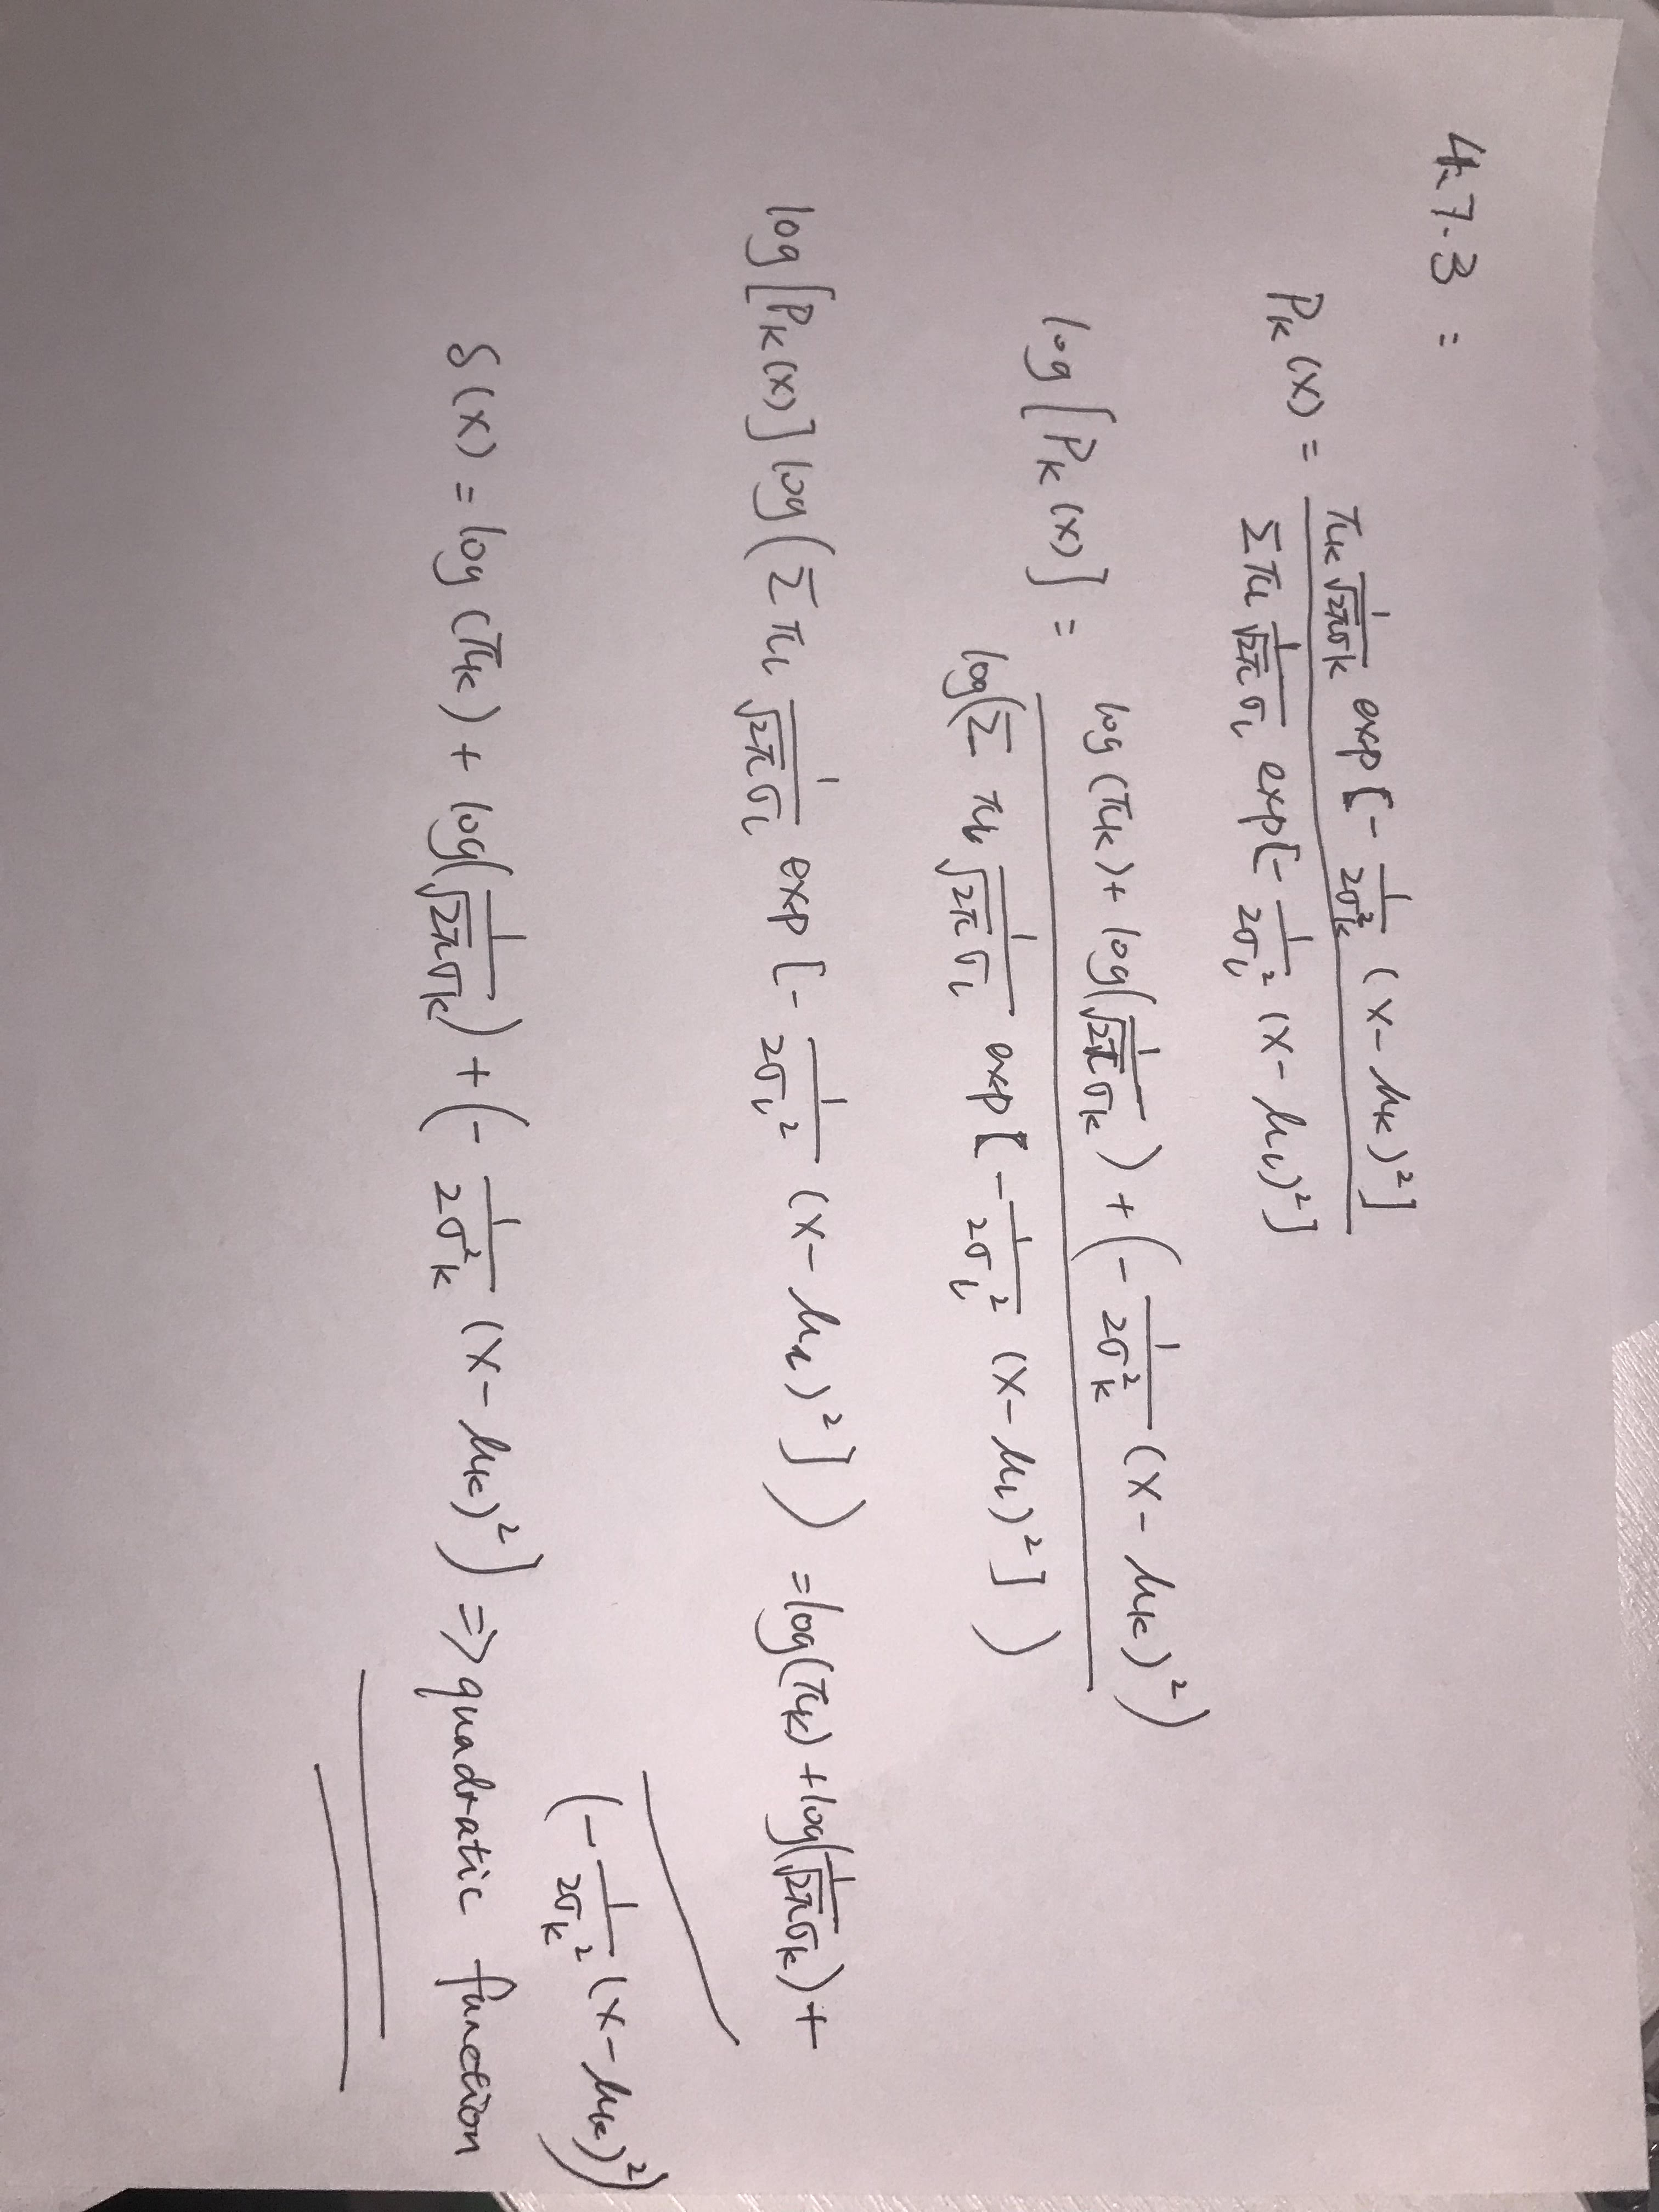 4.7.3 :
P_K (x) = \frac{π_K \frac{1}{\sqrt{2π}σ_K} exp[-\frac{1}{2σ_K^2} (x-μ_K)^2]}{Σπ_l \frac{1}{\sqrt{2π}σ_l} exp[-\frac{1}{2σ_l^2} (x-μ_l)^2]}
log[P_K (x)] = \frac{log(π_K) + log(\frac{1}{\sqrt{2π}σ_K}) + (-\frac{1}{2σ_K^2} (x-μ_K)^2)}{log(Σ π_l \frac{1}{\sqrt{2π}σ_l} exp[-\frac{1}{2σ_l^2} (x-μ_l)^2])}
log[P_K(x)] log(Σπ_l \frac{1}{\sqrt{2π}σ_l} exp[-\frac{1}{2σ_l^2} (x-μ_l)^2]) = log(π_K) + log(\frac{1}{\sqrt{2π}σ_K}) +
(-\frac{1}{2σ_K^2} (x-μ_K)^2)
δ(x) = log(π_K) + log(\frac{1}{\sqrt{2π}σ_K}) + (-\frac{1}{2σ_K^2} (x-μ_K)^2) => quadratic function